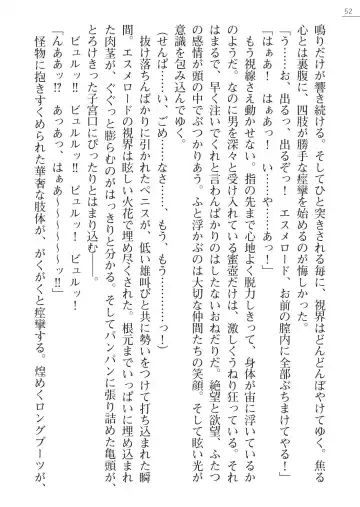 52
鳴りだけが響き続ける。そしてひと突きされる毎に、視界はどんどんぼやけてゆく。焦る
心とは裏腹に、四肢が勝手な痙攣を始めるのが悔しかった。
「う……お、出るっ、出るぞっ！　エスメロード、お前の膣内に全部ぶちまけてやる！」
「はぁぁ！　はぁっ！　い……や……あっ！」
もう視線さえ動かせない。指の先まで心地よく脱力しきって、身体が宙に浮いているか
のようだ。なのに男を深々と受け入れている蜜壺だけは、激しくうねり狂っている。それ
はまるで、早く注いでくれと言わんばかりのはしたないおねだりだ。絶望と欲望、ふたつ
の感情が頭の中でぶつかりあう。ふと浮かぶのは大切な仲間たちの笑顔。そして眩い光が
意識を包み込んでゆく。
（せんぱ……い、ごめ……なさ……、もう、もう…………っ！）
抜け落ちんばかりに引かれたペニスが、低い雄叫びと共に勢いをつけて打ち込まれた瞬
間、エスメロードの視界は眩しい火花で埋め尽くされた。根元までいっぱいに埋め込まれ
た肉茎が、ぐぐっと膨らむのがはっきりと分かる。そしてパンパンに張り詰めた亀頭が、
とろけきった子宮口にぴったりとはまり込む――。
ビュルルッ‼　ビュルッ‼　ビュルッ！　ビュルッ！
「んああッ⁉　あっあっ、はぁぁ〜〜〜〜〜〜ッ‼」
怪物に抱きすくめられた華奢な肢体が、がくがくと痙攣する。煌めくロングブーツが、